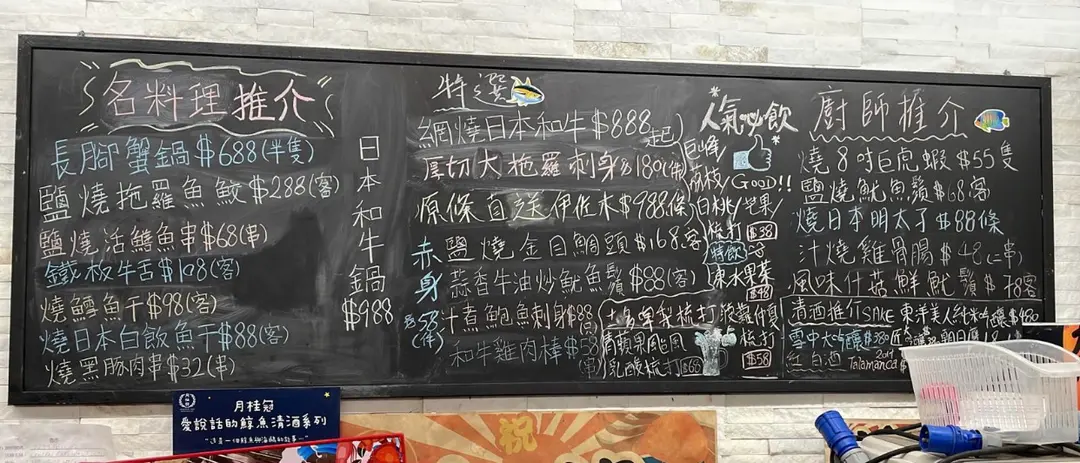 名料理推介
長腳蟹鍋$688(半隻)
鹽燒拖羅魚鮫$288(客)
鹽燒活鱔魚串$68(串)
鐵板牛舌$108(客)
燒鱈魚干$98(客)
燒日本白飯魚干$88(客)
燒黑豚肉串$32(串)
日本和牛鍋$988
特選
網燒日本和牛$888起
厚切大拖羅刺身$180(件)
原條直送伊佐木$988條
鹽燒金目鯛頭$168客
蒜香牛油炒魷魚鬚$88(客)
汁煮鮑魚刺身$88
和牛雞肉棒$58(串)
赤身
$58(件)
人氣必飲
巨峰/
荔枝/GOOD!!
白桃/芒果/
梳打 $38
特飲
凍水果茶
$48
梳打
$58
青蘋果
乳酸梳打$68
廚師推介
燒8吋巨虎蝦$55隻
鹽燒魷魚鬚$68客
燒日本明太子$88條
汁燒雞骨腸$48(二串)
風味什菇鮮魷鬚$78客
清酒推介SAKE 東洋美人純米吟釀$480
雪中大吟釀$380
紅白酒 Talamanca
月桂冠
愛說話的鯨魚清酒系列
祝